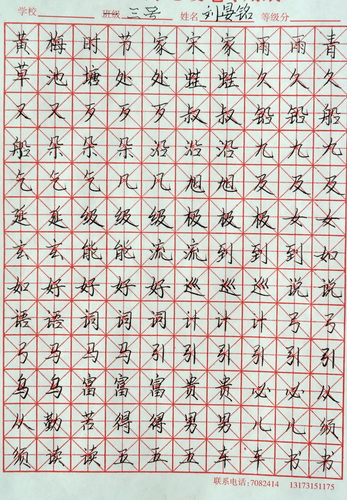 学校 班级 三号 姓名 刘晏铭 等级分
黄梅时节家家雨雨青
草池塘处处蛙蛙久久
又又歹歹歹叔叔铅铅船
船朵朵朵沿沿沿九九九
气气气凡凡旭旭及及及
延延级级级极极极女女
玄玄能能流流到到到如
如好好好好巡巡巡说说
语语词词词计计计弓弓
弓马马马引引引引引引
乌乌富富富贵贵必必从
从勤苦得得男男儿儿须
须读读五五五车车书书
联系电话:7082414 13173151175